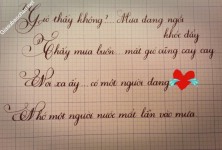 Gió thấy không? Mưa đang ngồi
khóc đấy
Thấy mưa buồn... mắt gió cũng cay cay
Nơi xa ấy... có một người đang
Nhớ một người nước mắt lẫn vào mưa